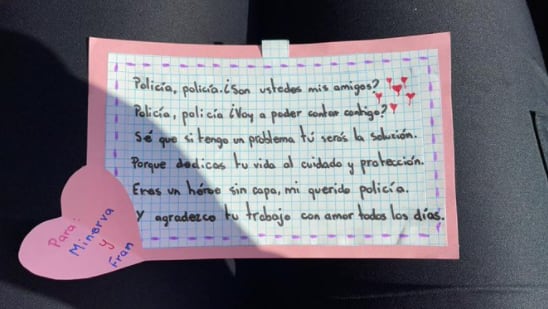 Policía, policía. ¿Son ustedes mis amigos?
Policía, policía ¿Voy a poder contar contigo?
Sé que si tengo un problema tú serás la solución.
Porque dedicas tu vida al cuidado y protección.
Eres un héroe sin capa, mi querido policía.
Y agradezco tu trabajo con amor todos los días.
Para:
Minerva
y
Fran